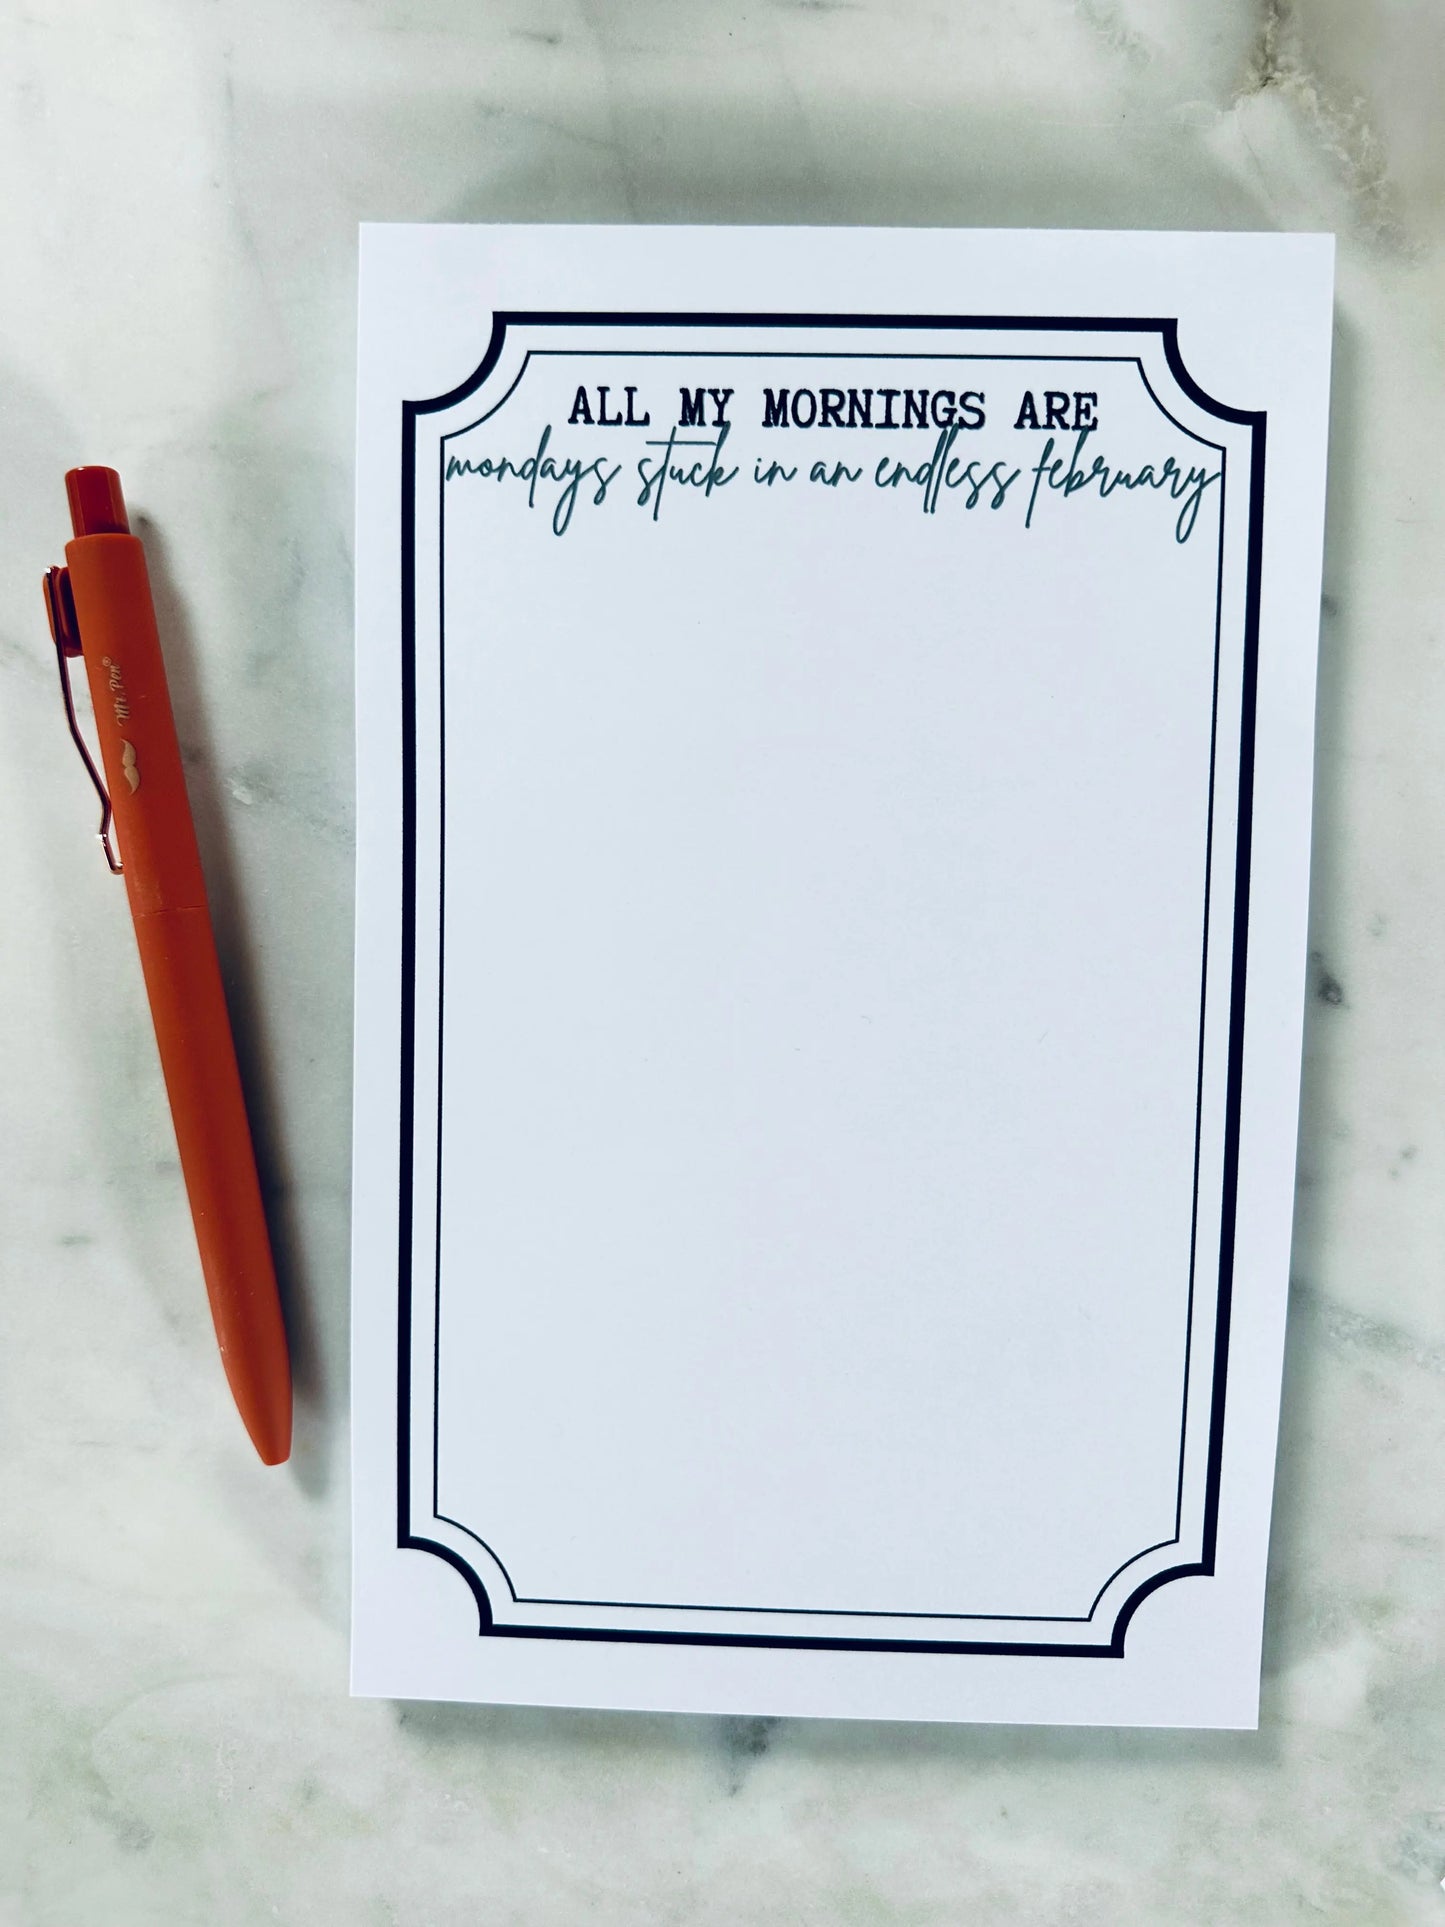 ALL MY MORNINGS ARE
mondays stuck in an endless february
Mr. Pen®